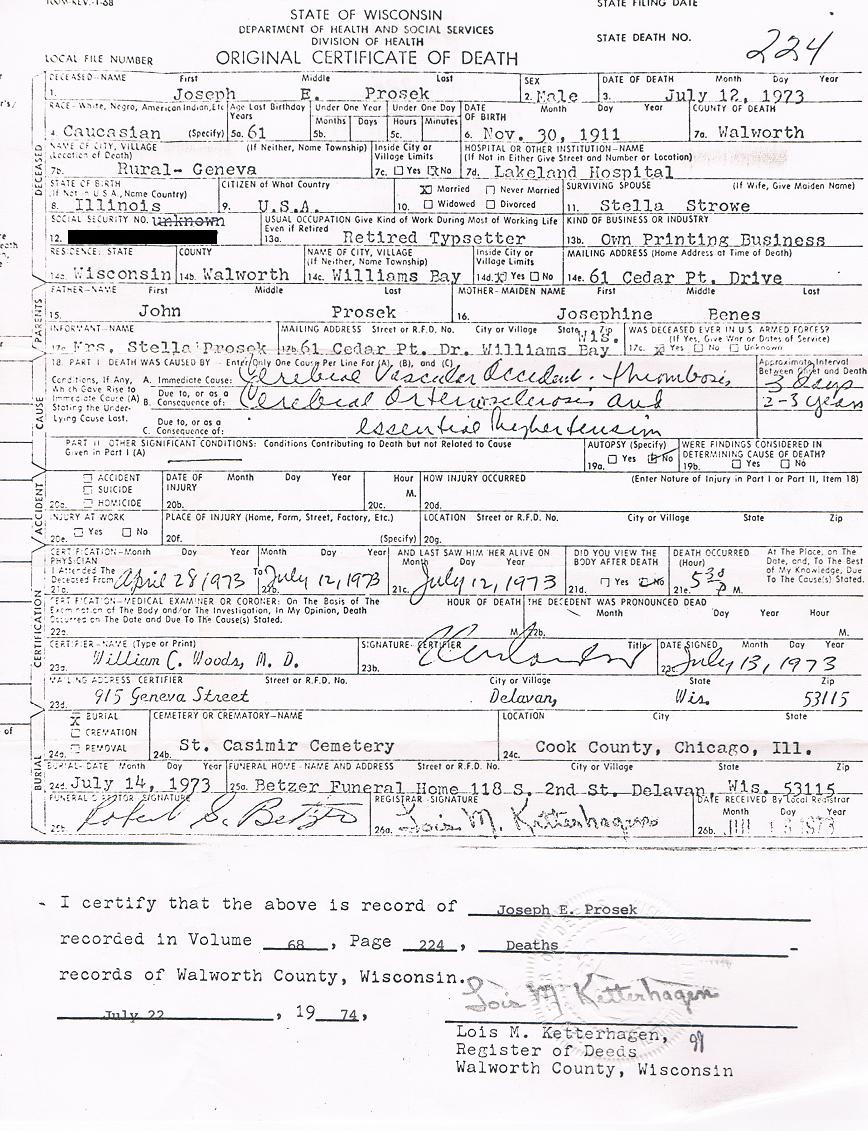 STATE OF WISCONSIN
DEPARTMENT OF HEALTH AND SOCIAL SERVICES
DIVISION OF HEALTH
STATE FILING DATE
STATE DEATH NO. 224
LOCAL FILE NUMBER
ORIGINAL CERTIFICATE OF DEATH
DECEASED-NAME First Middle Last SEX DATE OF DEATH Month Day Year
1. Joseph E. Prosek 2. Male 3. July 12, 1973
RACE-White, Negro, American Indian, Etc. Age Last Birthday Under One Year Under One Day DATE OF BIRTH Month Day Year COUNTY OF DEATH
Years Months Days Hours Minutes
4. Caucasian (Specify) 5a. 61 5b. 5c. 6. Nov. 30, 1911 7a. Walworth
NAME OF CITY, VILLAGE (If Neither, Name Township) Inside City or HOSPITAL OR OTHER INSTITUTION-NAME
(Location of Death) Village Limits (If Not in Either Give Street and Number or Location)
7b. Rural- Geneva 7c. Yes No 7d. Lakeland Hospital
STATE OF BIRTH CITIZEN of What Country Married Never Married SURVIVING SPOUSE (If Wife, Give Maiden Name)
(If Not in U S A, Name Country)
8. Illinois 9. U.S.A. 10. Widowed Divorced 11. Stella Strowe
SOCIAL SECURITY NO. unknown USUAL OCCUPATION Give Kind of Work During Most of Working Life KIND OF BUSINESS OR INDUSTRY
Even if Retired
12. 13a. Retired Typsetter 13b. Own Printing Business
RESIDENCE: STATE COUNTY NAME OF CITY, VILLAGE Inside City or MAILING ADDRESS (Home Address at Time of Death)
(If Neither, Name Township) Village Limits
14a. Wisconsin 14b. Walworth 14c. Williams Bay 14d. Yes No 14e. 61 Cedar Pt. Drive
FATHER-NAME First Middle Last MOTHER-MAIDEN NAME First Middle Last
15. John Prosek 16. Josephine Benes
INFORMANT-NAME MAILING ADDRESS Street or R.F.D. No. City or Village State Zip WAS DECEASED EVER IN U.S. ARMED FORCES?
Wis. (If Yes, Give War or Dates of Service)
17a. Mrs. Stella Prosek 17b. 61 Cedar Pt. Dr. Williams Bay 17c. Yes No Unknown
18. PART I DEATH WAS CAUSED BY - Enter Only One Cause Per Line For (A), (B), and (C) Approximate Interval Between Onset and Death
Conditions, If Any, A. Immediate Cause: Cerebral Vascular Accident, thrombosis 3 days
Which Gave Rise to
Immediate Cause (A) B. Due to, or as a Consequence of: Cerebral Arteriosclerosis and 2-3 years
Stating the Under-
Lying Cause Last. C. Due to, or as a Consequence of: essential hypertension
PART II OTHER SIGNIFICANT CONDITIONS: Conditions Contributing to Death but not Related to Cause AUTOPSY (Specify) WERE FINDINGS CONSIDERED IN
Given in Part I (A) 19a. Yes No DETERMINING CAUSE OF DEATH?
19b. Yes No
ACCIDENT DATE OF INJURY Month Day Year HOUR HOW INJURY OCCURRED (Enter Nature of Injury in Part I or Part II, Item 18)
SUICIDE
20a. HOMICIDE 20b. 20c. M. 20d.
INJURY AT WORK PLACE OF INJURY (Home, Farm, Street, Factory, Etc.) LOCATION Street or R.F.D. No. City or Village State Zip
20e. Yes No 20f. (Specify) 20g.
CERTIFICATION-Month Day Year Month Day Year AND LAST SAW HIM HER ALIVE ON DID YOU VIEW THE DEATH OCCURRED At The Place, on The
PHYSICIAN Month Day Year BODY AFTER DEATH (Hour) Date, and, To The Best
I Attended The of My Knowledge, Due
Deceased From To To The Cause(s) Stated.
21a. April 28, 1973 21b. July 12, 1973 21c. July 12, 1973 21d. Yes No 21e. 5 30 P M.
CERTIFICATION-MEDICAL EXAMINER OR CORONER: On The Basis of The HOUR OF DEATH THE DECEDENT WAS PRONOUNCED DEAD
Examination of The Body and/or The Investigation, In My Opinion, Death Month Day Year Hour
Occurred on The Date and Due To The Cause(s) Stated.
22a. M. 22b. M.
CERTIFIER-NAME (Type or Print) SIGNATURE-CERTIFIER Title DATE SIGNED Month Day Year
23a. William C. Woods, M. D. 23b. 23c. July 13, 1973
MAILING ADDRESS CERTIFIER Street or R.F.D. No. City or Village State Zip
23d. 915 Geneva Street Delavan, Wis. 53115
BURIAL CEMETERY OR CREMATORY-NAME LOCATION City State
CREMATION
24a. REMOVAL 24b. St. Casimir Cemetery 24c. Cook County, Chicago, Ill.
BURIAL-DATE Month Day Year FUNERAL HOME-NAME AND ADDRESS Street or R.F.D. No. City or Village State Zip
24d. July 14, 1973 25a. Betzer Funeral Home 118 S. 2nd St. Delavan, Wis. 53115
FUNERAL DIRECTOR SIGNATURE REGISTRAR SIGNATURE DATE RECEIVED BY Local Registrar
Month Day Year
25b. Robert G. Betzer 26a. Lois M. Ketterhagen 26b. 1973
DECEASED
PARENTS
CAUSE
ACCIDENT
CERTIFICATION
BURIAL
- I certify that the above is record of Joseph E. Prosek
recorded in Volume 68 , Page 224 , Deaths -
records of Walworth County, Wisconsin.
Lois M Ketterhagen
July 22 , 19 74,
Lois M. Ketterhagen,
Register of Deeds
Walworth County, Wisconsin